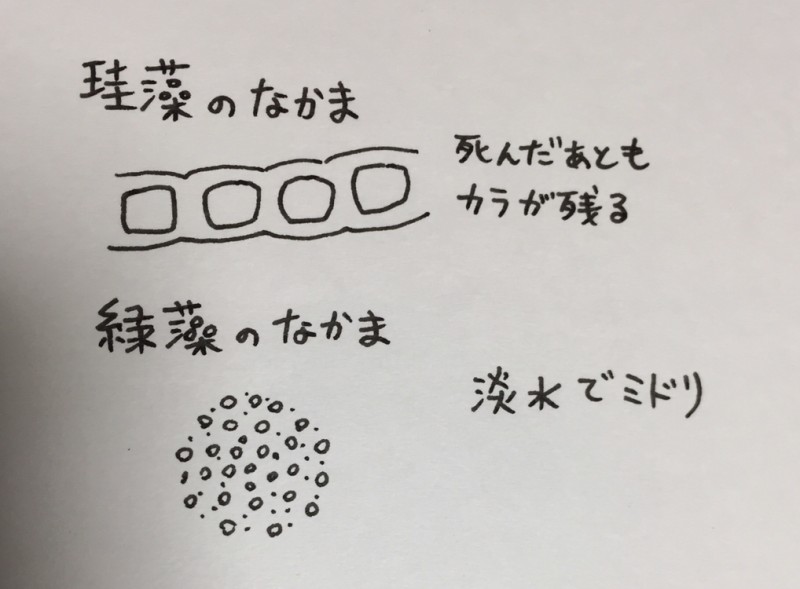 珪藻のなかま
死んだあとも
カラが残る
緑藻のなかま
淡水でミドリ